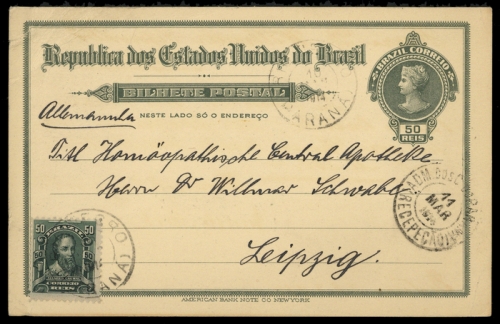 Republica dos Estados Unidos do Brazil
BILHETE POSTAL
BRAZIL CORREIO
50
REIS
NESTE LADO SÓ O ENDEREÇO
Allemanha
Titl Homöopathische Central Apotheke
Herrn Dr Willmar Schwabe
Leipzig.
11
MAR
50 50
BRAZIL
CORREIO
REIS
PARANÁ)
AMERICAN BANK NOTE CO NEW YORK